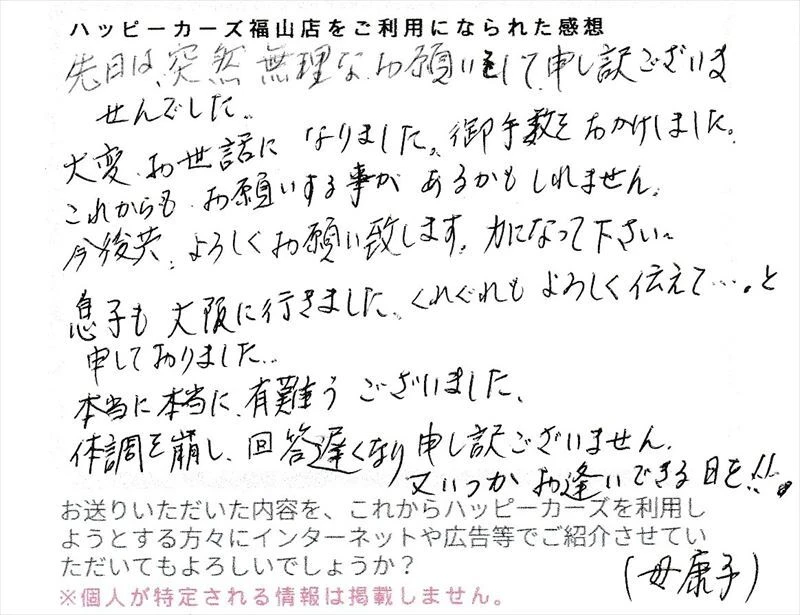 ハッピーカーズ福山店をご利用になられた感想
先日は、突然無理なお願いをして、申し訳ございま
せんでした。
大変、お世話に なりました。御手数をおかけしました。
これからも お願いする事が あるかもしれません。
今後共、よろしくお願い致します。力になって下さい〜
息子も大阪に行きました。くれぐれもよろしく伝えて…。と
申しておりました。
本当に本当に、有難うございました。
体調を崩し、回答遅くなり申し訳ございません。
又いつかお逢いできる日を!!。
お送りいただいた内容を、これからハッピーカーズを利用し
ようとする方々にインターネットや広告等でご紹介させてい
ただいてもよろしいでしょうか？
(母康子)
※個人が特定される情報は掲載しません。